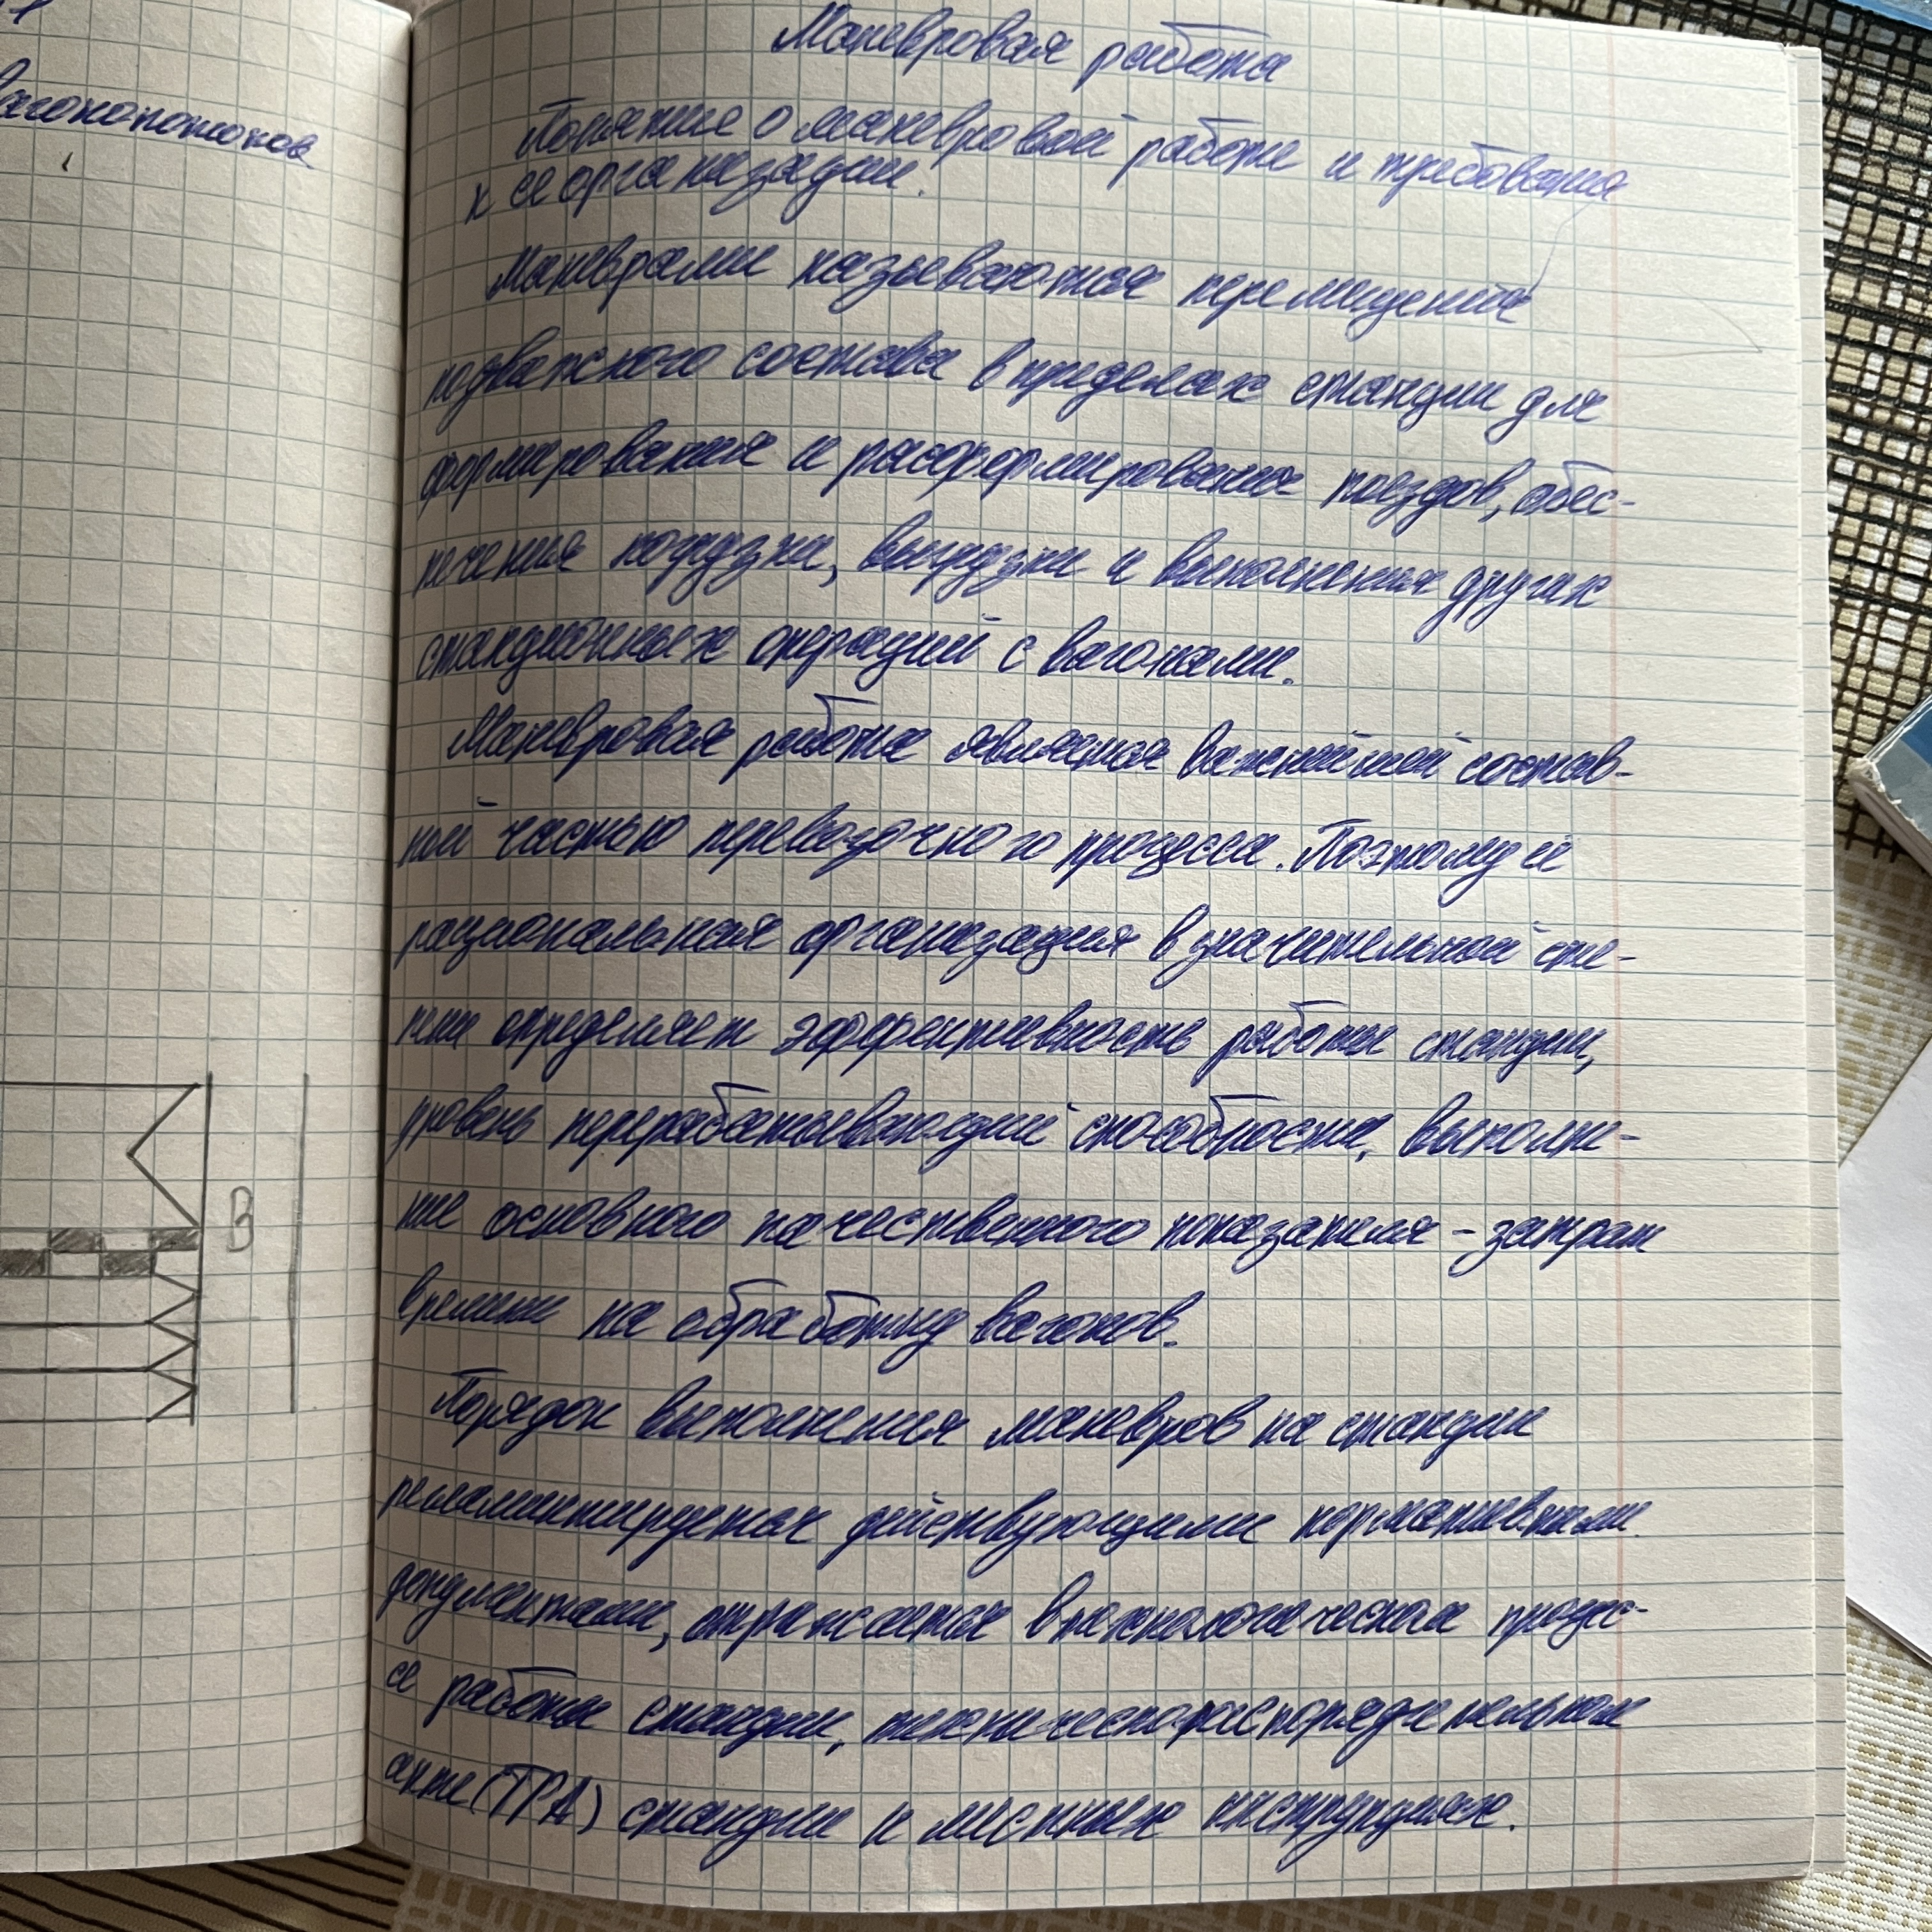 вагонопотоков
В
Маневровая работа
Понятие о маневровой работе и требования
к ее организации.
Маневрами называются перемещения
подвижного состава в пределах станции для
формирования и расформирования поездов, обес-
печения погрузки, выгрузки и выполнения других
станционных операций с вагонами.
Маневровая работа является важнейшей состав-
ной частью перевозочного процесса. Поэтому её
рациональная организация в значительной сте-
пени определяет эффективность работы станции,
уровень перерабатывающей способности, выполне-
ние основного качественного показателя - затрат
времени на обработку вагонов.
Порядок выполнения маневров на станции
регламентируется действующими нормативными
документами, отражается в технологическом процес-
се работы станции, техническораспорядительном
акте (ТРА) станции и местных инструкциях.